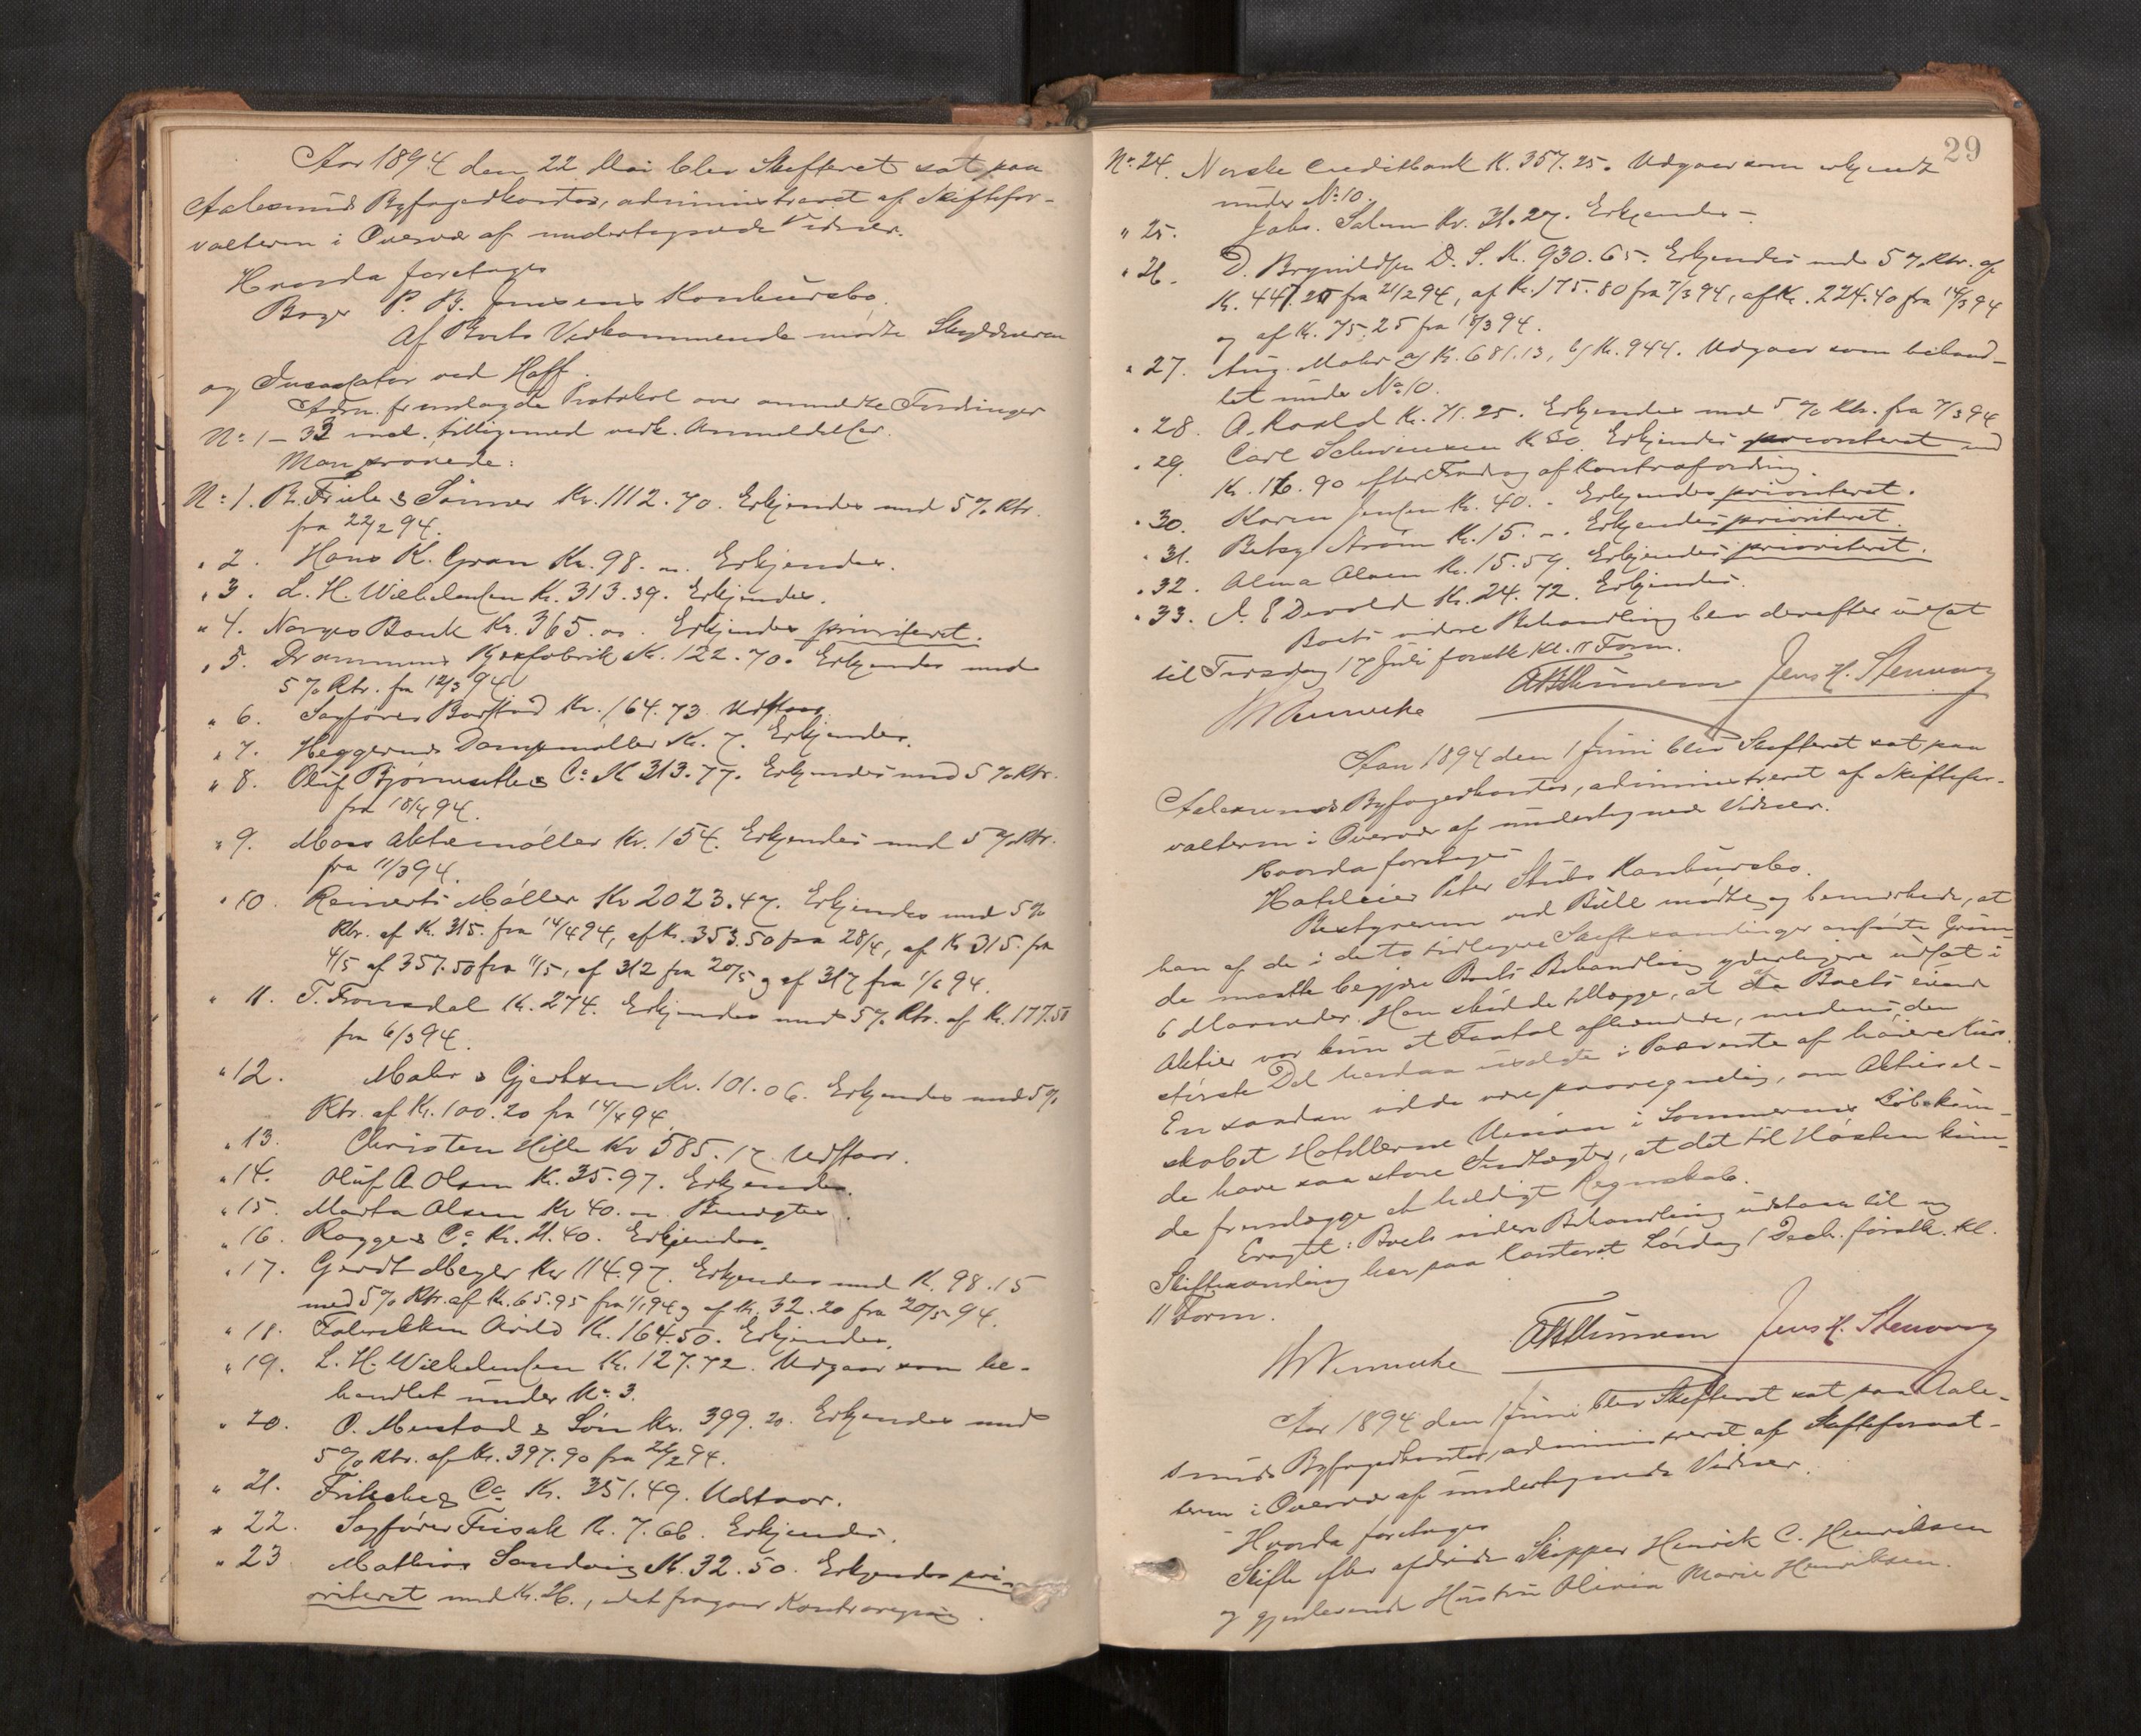 Aar 1894 den 22 Mai blev Skifteret sat paa
Aalesunds Byfogedkontor, administreret af Skiftefor-
valteren i Overvær af undertegnede Vidner.
Hvorda foretoges
Bager P. B. Jensens Konkursbo.
Af Boets Vedkommende mødte Skyldneren
og Incassator ved Hoff.
Adm. fremlagde Protokol over anmeldte Fordringer
No 1 – 33 incl. tilligemed vedk. Anmeldelser.
Man prøvede:
No 1. B. Friele & Sønner Kr. 1112.70. Erkjendes med 5% Rtr.
fra 22/2 94.
" 2. Hans K. Gran Kr. 98. " Erkjendes.
" 3. L. H. Wilhelmsen K. 313.39. Erkjendes.
" 4. Norges Bank Kr. 365. " . Erkjendes prioriteret.
" 5. Drammens Kjexfabrik K. 122.70. Erkjendes med
5% Rtr. fra 12/3 94
" 6. Sagfører Kr. 164.73 Udstaar.
" 7. Heggernes Dampmøller K. 7. Erkjendes.
" 8. Oluf Bjørneseth & Co K 313.77. Erkjendes med 5% Rtr.
fra 18/4 94.
" 9. Moss Aktiemøller Kr. 154. Erkjendes med 5% Rtr.
fra 11/3 94.
" 10. Reinerts Møller Kr 2023.47. Erkjendes med 5%
Rtr. af K. 315. fra 14/4 94, af Kr. 353.50 fra 28/4, af K 315. fra
4/5 af 357.50 fra 11/5, af 312 fra 20/5 og af 317 fra 1/6 94.
" 11. T. Fronsdal K. 274. Erkjendes med 5% Rtr. af K. 177.50
fra 6/3 94.
" 12. Mohr & Gjertsen Kr. 101.06. Erkjendes med 5%
Rtr. af K. 100.20 fra 14/4 94.
" 13. Christen Kr 585.17. Udstaar.
" 14. Oluf A. Olsen K. 35.97. Erkjendes.
" 15. Marta Olsen Kr 40. " Benegtes.
" 16. Rogge & Co K. 21.40. Erkjendes.
" 17. Gerdt Meyer Kr 114.97. Erkjendes med K. 98.15
med 5% Rtr. af K. 65.95 fra 1/1 94 og af K. 32.20 fra 20/5 94.
" 18. Fabrikken Arild K. 164.50. Erkjendes.
" 19. L. H. Wilhelmsen K. 127.72. Udgaar som be-
handlet under No 3.
" 20. O. Mustad & Søn Kr. 399.20. Erkjendes med
5% Rtr. af K. 397.90 fra 21/2 94.
" 21. & Co K. 351.49. Udstaar.
" 22. Sagfører Frisak K. 7.66. Erkjendes.
" 23 Mathias Sandvig K. 32.50. Erkjendes pri-
oriteret med K. 26., idet fragaar Kontraregning.
29
No 24. Norske Creditbank K. 357.25. Udgaar som erkjendt
under No 10.
" 25. Jabs. Salem Kr. 31.27. Erkjendes –
" 26. D. Brynildsen D. S. K. 930.65. Erkjendes med 5% Rtr. af
K. 447.20 fra 21/2 94, af K. 175.80 fra 7/3 94, af K. 224.40 fra 14/3 94
og af K. 75.25 fra 18/3 94.
" 27. Aug. Mohr a/ K. 681.13, b/ K. 944. Udgaar som behand-
let under No 10.
" 28. A. Roald K. 71.25. Erkjendes med 5% Rtr. fra 7/3 94
" 29. Carl Schwensen K 30. Erkjendes prioriteret med
K. 16.90 efter Fradrag af Kontrafordring.
" 30. Karen Jensen K. 40. – Erkjendes prioriteret.
" 31. Betzy Strøm K. 15. –. Erkjendes prioriteret.
" 32. Alma Olsen K. 15.59. Erkjendes prioriteret.
" 33. A. E Devold K. 24.72. Erkjendes.
Boets videre Behandling blev derefter udsat
til Tirsdag 17 Juli førstk. Kl. 11 Form.
Jens H. Stenvaag
Aar 1894 den 1 Juni blev Skifteret sat paa
Aalesunds Byfogedkontor, administreret af Skiftefor-
valteren i Overvær af undertegnede Vidner.
Hvorda foretoges
Hoteleier Peter Stubs Konkursbo.
Bestyreren ved Bull mødte og bemærkede, at
han af de i dette tidligere Skiftesamlinger anførte Grun-
de maatte begjære Boets Behandling yderligere udsat i
6 Maaneder. Han skulde tillægge, at af Boets
Aktier var kun et Faatal afhændede, medens den
største Del henstaar usolgte i Paavente af høiere Kurs.
En saadan vilde være paaregnelig, om Aktiesel-
skabet Hotellerne Union i Sommerens Løb kun-
de have saa store Indtægter, at det til Høsten kun-
de fremlægge et heldigt Regnskab.
Eragtet: Boets videre Behandling udstaar til ny
Skiftesamling her paa Kontoret Lørdag 1 Decbr. førstk. kl.
11 Form.
Jens H. Stenvaag
Aar 1894 den 1 Juni blev Skifteret sat paa Aale-
sunds Byfogedkontor, administreret af Skifteforval-
teren i Overvær af undertegnede Vidner.
Hvorda foretoges
Skifte efter afdøde Skipper Henrik C. Henriksen
og gjenlevende Hustru Olivia Marie Henriksen.